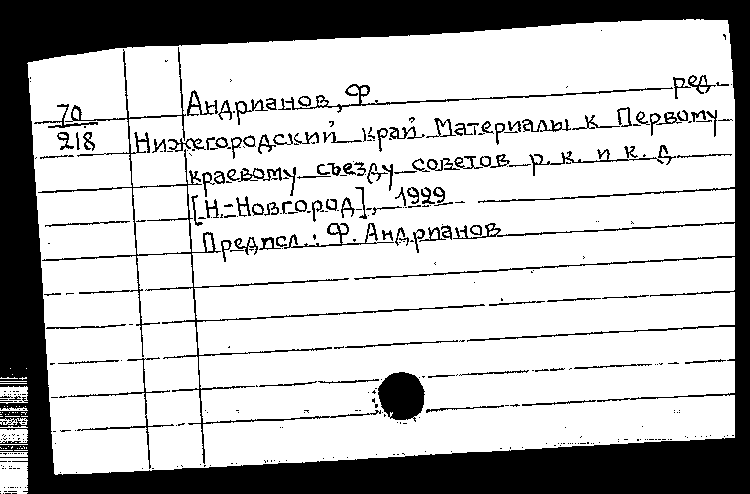 70
218
Андрианов, Ф. ред.
Нижегородский край. Материалы к Первому
краевому съезду советов р. к. и к. д.
[Н.-Новгород], 1929
Предисл.: Ф. Андрианов